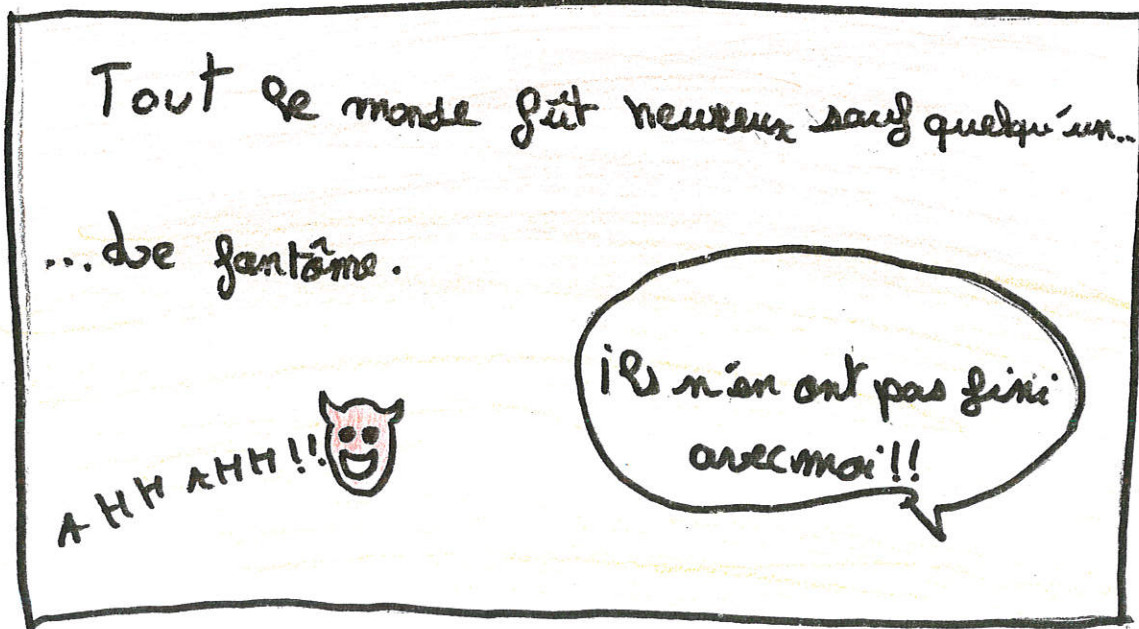 Tout le monde fût heureux sauf quelqu'un..
...Le fantôme.
ils n'en ont pas fini
avec moi!!
AHH AHH!!